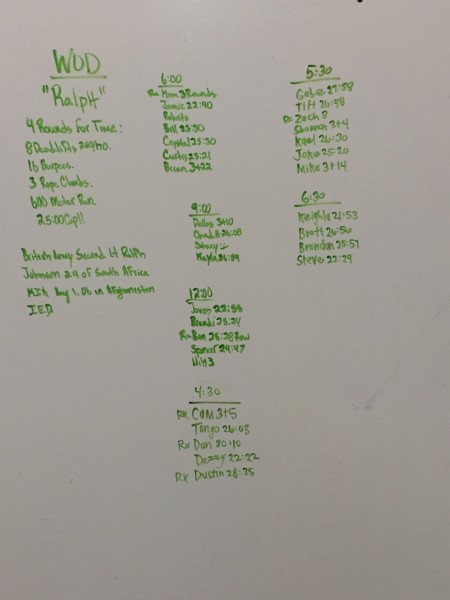 WOD
"Ralph"
4 Rounds for Time:
8 Deadlifts 250/170.
16 Burpees.
3 Rope Climbs.
600 Meter Run.
25:00 Cap!!
British Army Second Lt Ralph
Johnson 24 of South Africa
KIA Aug 1.06 in Afghanistan
IED
6:00
Rx 3 Rounds
Jamie 22:40
Roberto
Bill 25:30
Crystal 25:30
Curtis 23:21
Brian 3+22
9:00
Dallas 3+10
26:08
Sidney
Kayla 26:59
12:00
James 22:55
Brandi 25:24
Rx Ben 25:28 Row
Spencer 24:47
Will 3
4:30
Rx CVM 3+5
Tingo 26:03
Rx Dan 20:10
Dezzy 22:22
Rx Dustin 28:35
5:30
Gabe 27:58
Tiff 26:48
Rx Zach 3
Shannon 3+4
Kaol 26:30
Jake 25:20
Mike 3+14
6:30
Keighla 21:53
Brett 26:50
Brendan 25:57
Steve 22:29